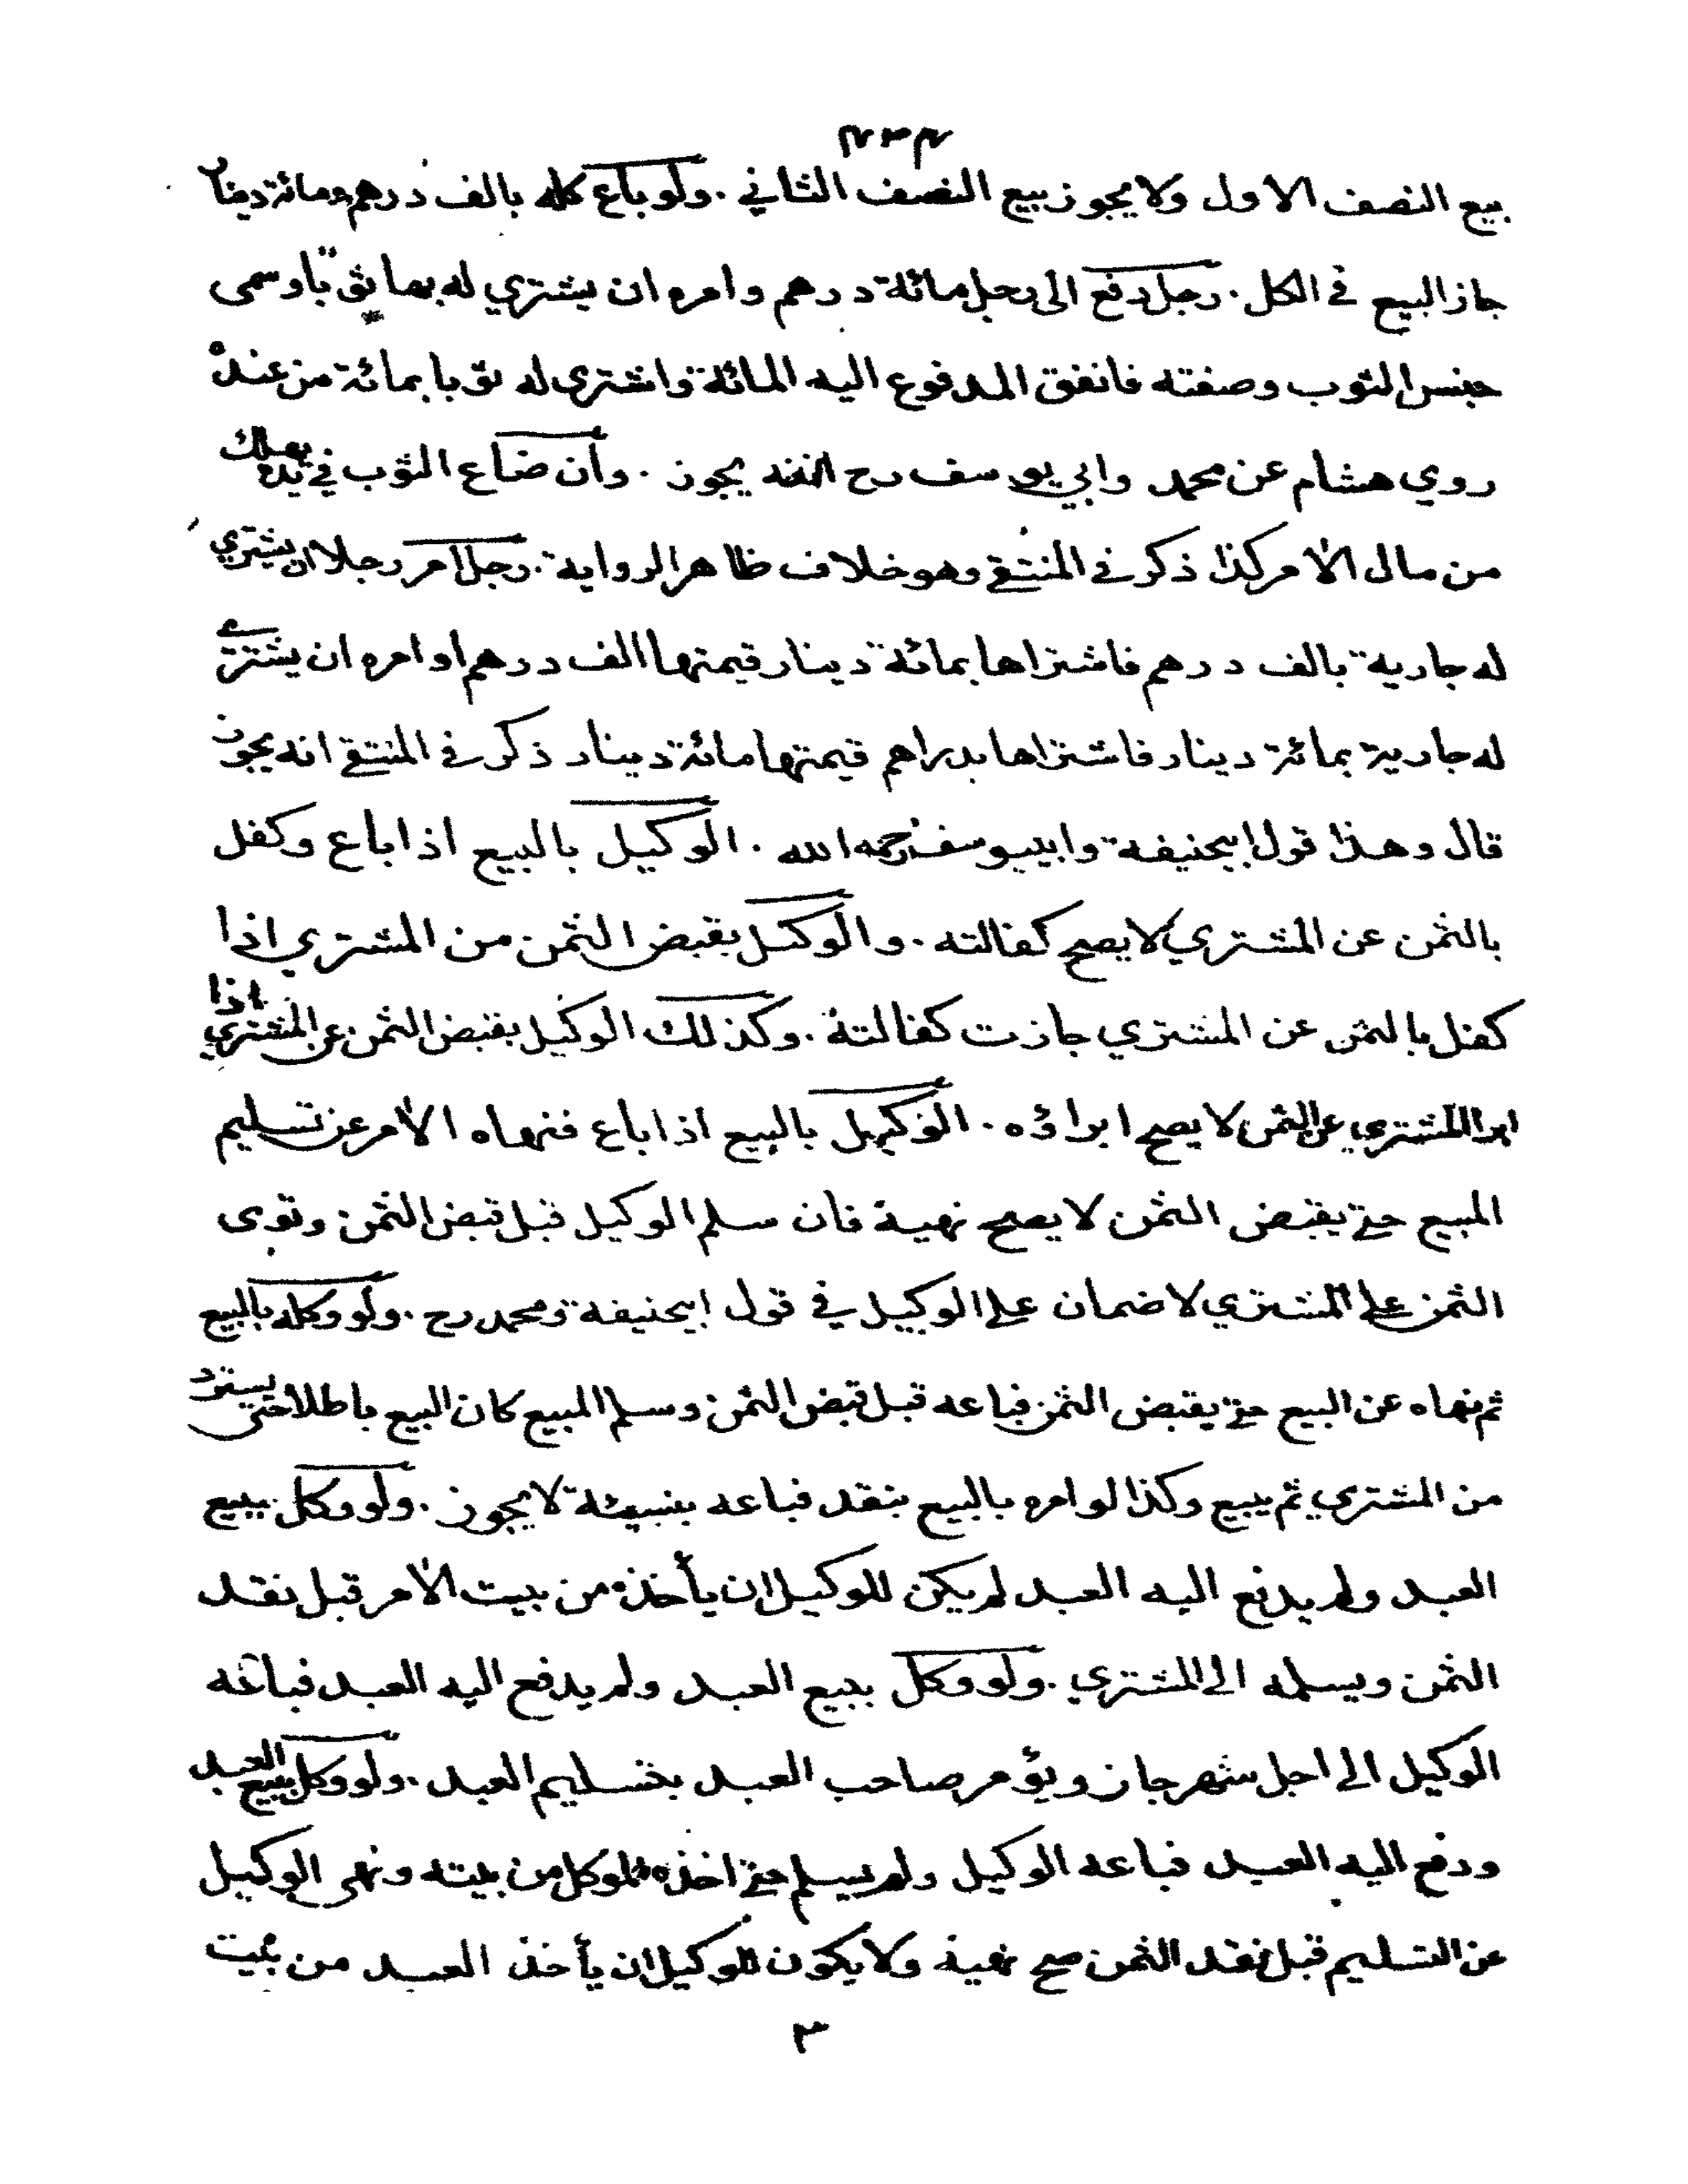 بيع النصف الاول ولا يجوز بيع النصف الثاني . ولو باع كله بالف درهم ومائة دينار
جاز البيع في الكل . رجل دفع الى رجل مائة درهم وامره ان يشتري له بها ثوبا وسمى
جنس الثوب وصفته فانفق المدفوع اليه المائة واشترى له ثوبا بمائة من عنده
روي هشام عن محمد وابي يوسف رح انه يجوز . وان ضاع الثوب في يده يهلك
من مال الآمر كذا ذكر في المنتقى وهو خلاف ظاهر الرواية . رجل امر رجلا ان يشتري
له جارية بالف درهم فاشتراها بمائة دينار قيمتها الف درهم او امره ان يشتري
له جارية بمائة دينار فاشتراها بدراهم قيمتها مائة دينار ذكر في المنتقى انه يجوز
قال وهذا قول ابيحنيفة وابييوسف رحمه الله . الوكيل بالبيع اذا باع وكفل
بالثمن عن المشتري لا يصح كفالته . والوكيل بقبض الثمن من المشتري اذا
كفل بالثمن عن المشتري جازت كفالته . وكذلك الوكيل بقبض الثمن عن المشتري اذا
ابرا المشتري عن الثمن لا يصح ابراؤه . الوكيل بالبيع اذا باع فنهاه الآمر عن تسليم
المبيع حتى يقبض الثمن لا يصح نهيه فان سلم الوكيل قبل قبض الثمن وتوى
الثمن على المشتري لا ضمان على الوكيل في قول ابيحنيفة ومحمد رح . ولو وكله بالبيع
ثم نهاه عن البيع حتى يقبض الثمن فباعه قبل قبض الثمن وسلم المبيع كان البيع باطلا حتى يسترد
من المشتري ثم يبيع وكذا لو امره بالبيع بنقد فباعه بنسيئة لا يجوز . ولو وكل ببيع
العبد ولم يدفع اليه العبد لم يكن للوكيل ان يأخذه من بيت الآمر قبل نقد
الثمن ويسلمه الى المشتري . ولو وكل ببيع العبد ولم يدفع اليه العبد فباعه
الوكيل الى اجل شهر جاز ويؤمر صاحب العبد بتسليم العبد . ولو وكل ببيع العبد
ودفع اليه العبد فباعه الوكيل ولم يسلم حتى اخذه الموكل من بيته ونهى الوكيل
عن التسليم قبل نقد الثمن صح نهيه ولا يكون للوكيل ان يأخذ العبد من بيت
٣